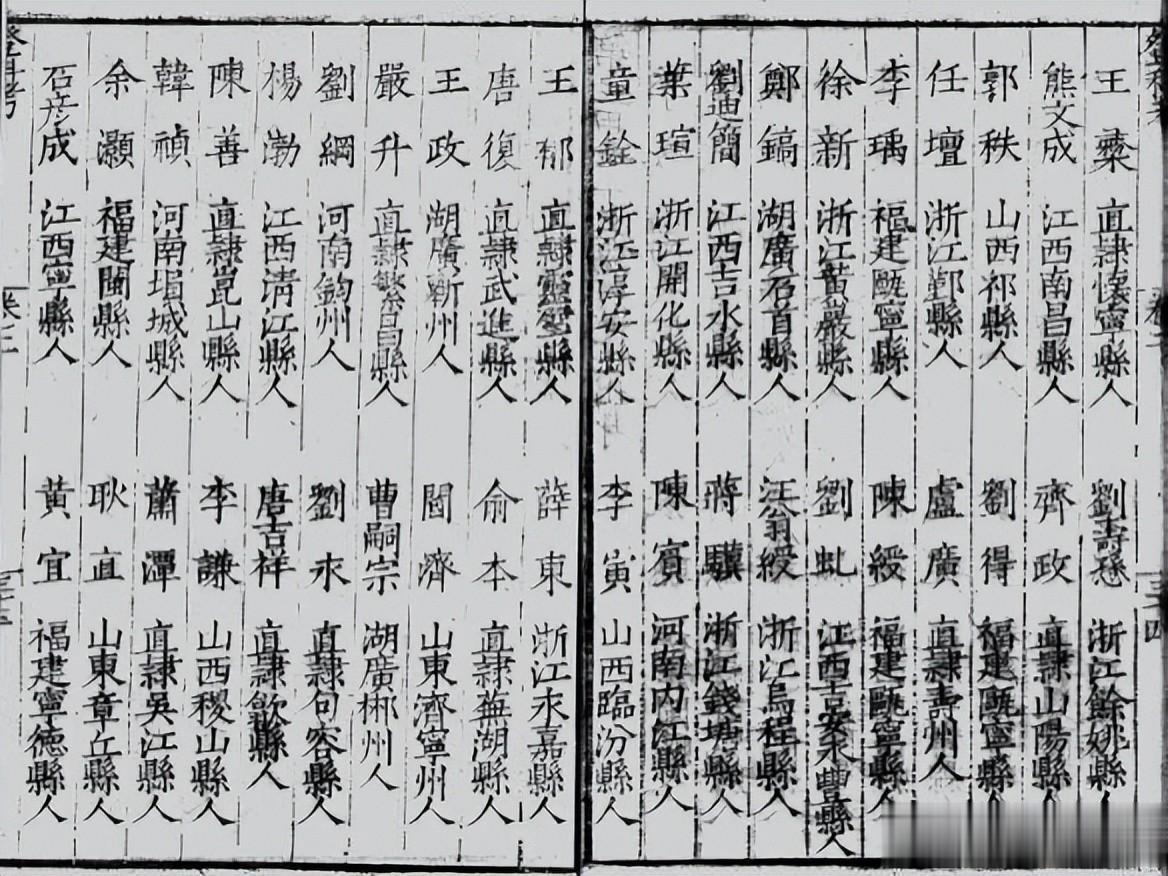 王䴢 直隸懷寧縣人 劉壽愻 浙江餘姚縣人
熊文成 江西南昌縣人 齊政 直隸山陽縣人
郭秩 山西祁縣人 劉得 福建甌寧縣人
任壇 浙江鄞縣人 盧廣 直隸壽州人
李瑀 福建甌寧縣人 陳綬 福建甌寧縣人
徐新 浙江黃巖縣人 劉虬 江西吉安永豐縣人
鄭鎬 湖廣石首縣人 汪翁綬 浙江烏程縣人
劉迪簡 江西吉水縣人 蔣驥 浙江錢塘縣人
葉瑄 浙江開化縣人 陳賓 河南內江縣人
童銓 浙江淳安縣人 李寅 山西臨汾縣人
王郁 直隸靈璧縣人 薛東 浙江永嘉縣人
唐復 直隸武進縣人 俞本 直隸蕪湖縣人
王政 湖廣蘄州人 閻濟 山東濟寧州人
嚴升 直隸繁昌縣人 曹嗣宗 湖廣郴州人
劉綱 河南鈞州人 劉永 直隸句容縣人
楊渤 江西清江縣人 唐吉祥 直隸歙縣人
陳善 直隸崑山縣人 李謙 山西稷山縣人
韓禎 河南項城縣人 蕭潭 直隸吳江縣人
余灝 福建閩縣人 耿直 山東章丘縣人
石彥成 江西寧縣人 黃宜 福建寧德縣人
登科考 卷二